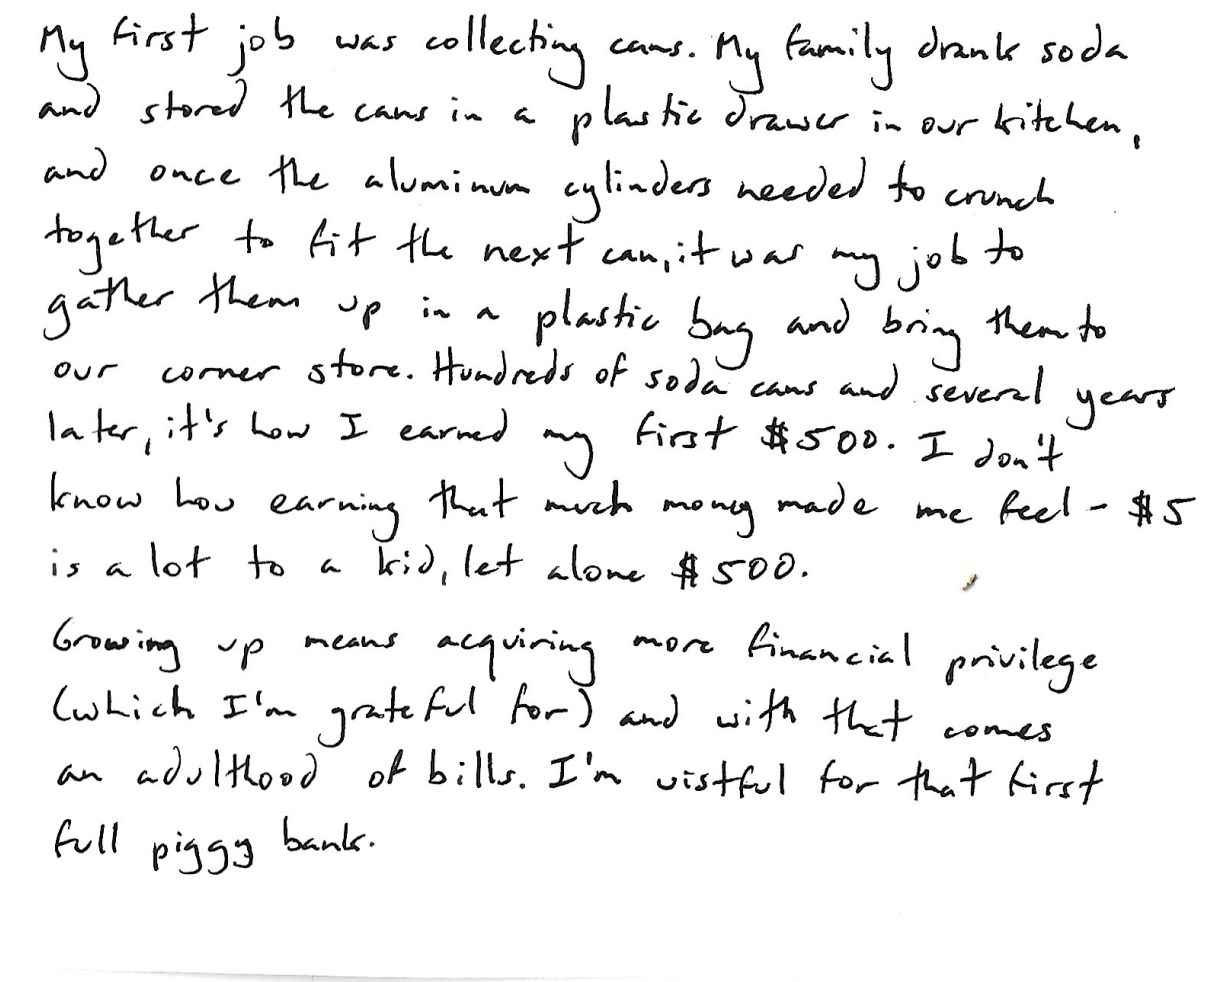 My first job was collecting cans. My family drank soda
and stored the cans in a plastic drawer in our kitchen,
and once the aluminum cylinders needed to crunch
together to fit the next can, it was my job to
gather them up in a plastic bag and bring them to
our corner store. Hundreds of soda cans and several years
later, it's how I earned my first $500. I don't
know how earning that much money made me feel - $5
is a lot to a kid, let alone $500.
Growing up means acquiring more financial privilege
(which I'm grateful for) and with that comes
an adulthood of bills. I'm wistful for that first
full piggy bank.